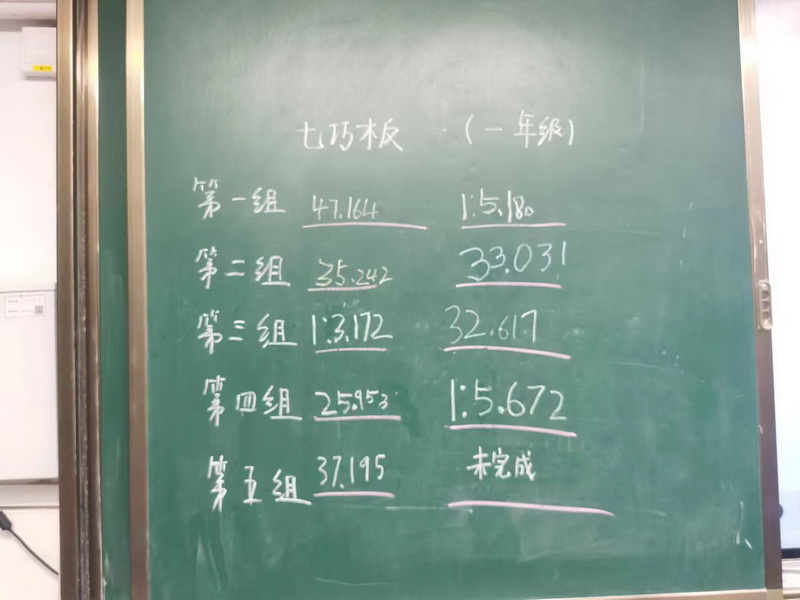 七巧板 (一年级)
第一组 47.164 1:5.180
第二组 35.242 33.031
第三组 1:3.172 32.617
第四组 25.953 1:5.672
第五组 37.195 未完成